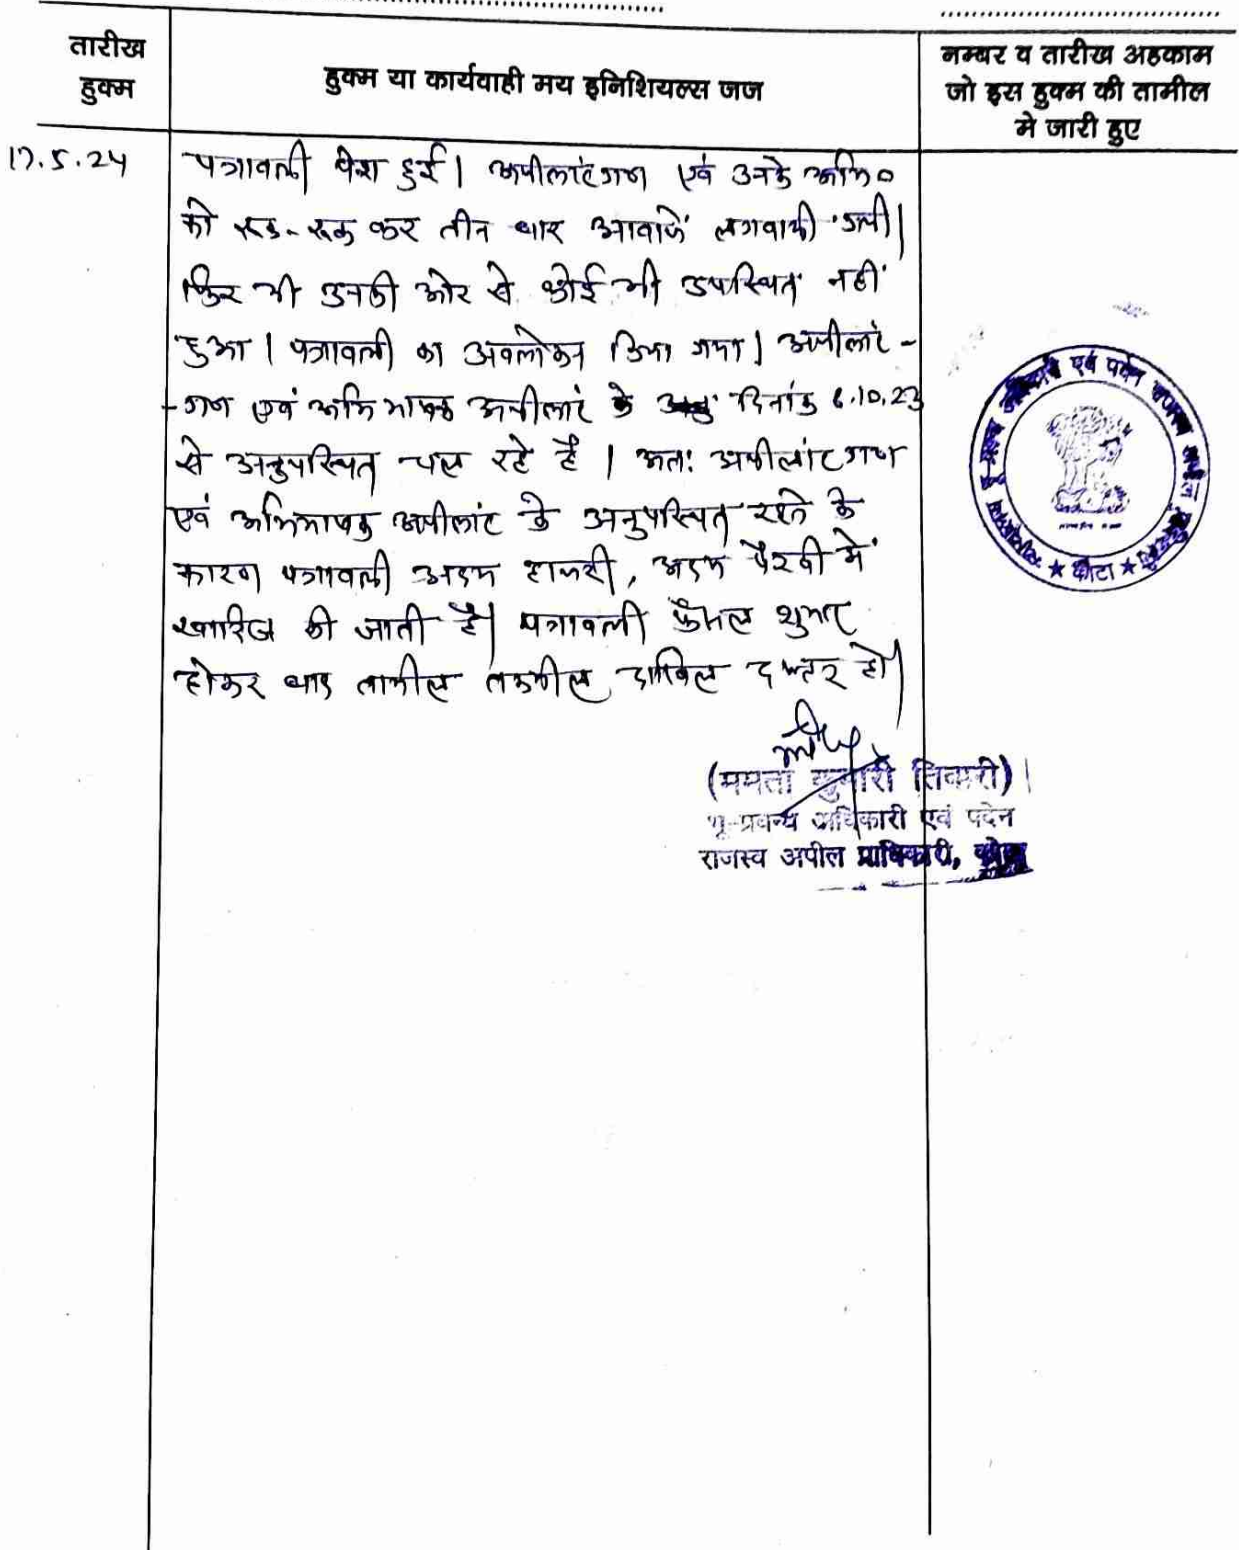 तारीख
हुक्म
हुक्म या कार्यवाही मय इनिशियल्स जज
नम्बर व तारीख अहकाम
जो इस हुक्म की तामील
मे जारी हुए
17.5.24
पत्रावली पेश हुई। अपीलांटगण एवं उनके अभि०
को रूक-रूक कर तीन बार आवाजें लगवायी गयी।
फिर भी उनकी ओर से कोई भी उपस्थित नहीं
हुआ। पत्रावली का अवलोकन किया गया। अपीलां-
-गण एवं अभिभाषक अपीलांट के दिनांक 6.10.23
से अनुपस्थित चल रहे हैं। अतः अपीलांटगण
एवं अभिभाषक अपीलांट के अनुपस्थित रहने के
कारण पत्रावली अदम हाजरी, अदम पैरवी में
खारिज की जाती है। पत्रावली फैसल शुमार
होकर बाद तामील तकमील दाखिल दफ्तर हो।
(ममता कुमारी तिवारी)
भू-प्रबन्ध अधिकारी एवं पदेन
राजस्व अपील प्राधिकारी, कोटा
एवं पदेन राजस्व अपील
★ कोटा ★